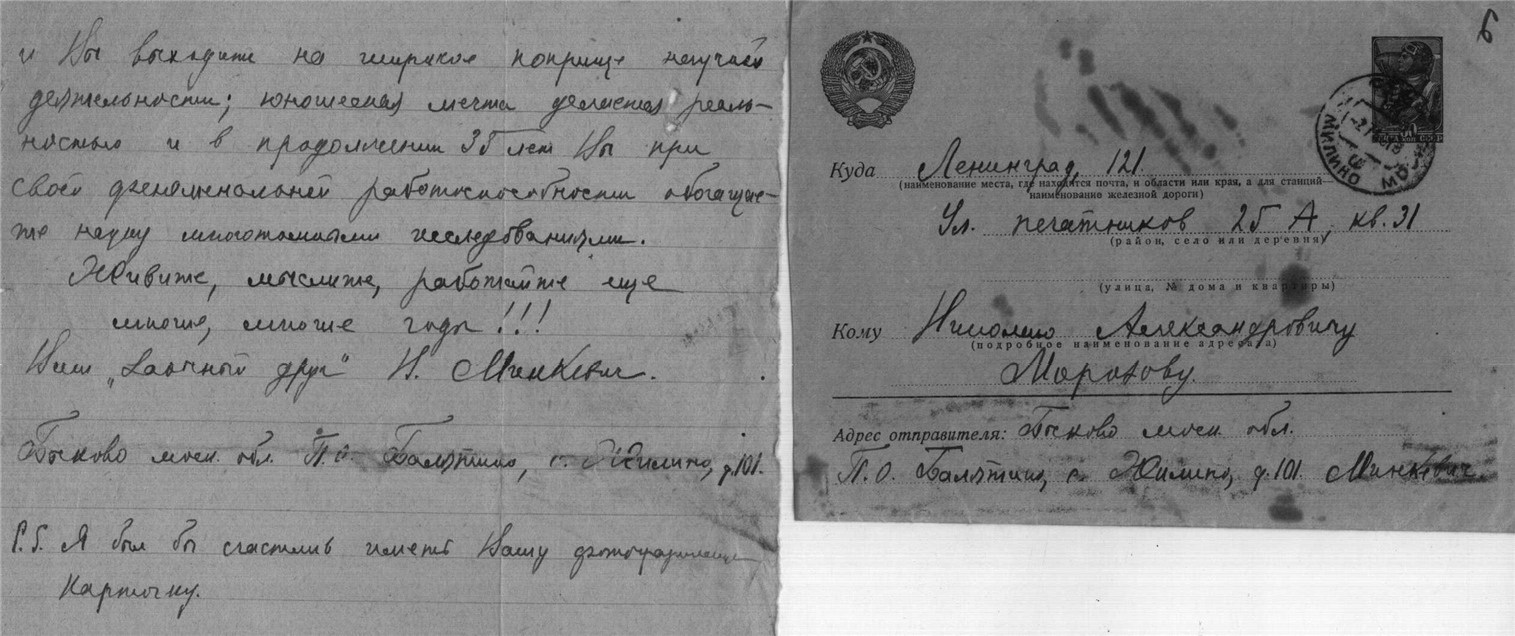 и Вы выходите на широкое поприще научной
деятельности; юношеская мечта делается реаль-
ностью и в продолжении 35 лет Вы при
своей феноменальной работоспособности обогащае-
те науку многотомными исследованиями.
Живите, мыслите, работайте еще
многие, многие годы!!!
Ваш „Заочный друг" Н. Минкевич.
Быково моск. обл. П.О. Балятино, с. Жилино, д.101.
P.S. Я был бы счастлив иметь Вашу фотографическую
карточку.
6
Куда Ленинград, 121
(наименование места, где находится почта, и области или края, а для станций—
наименование железной дороги)
Ул. печатников 25 А, кв. 31
(район, село или деревня)
(улица, № дома и квартиры)
Кому Николаю Александровичу
(подробное наименование адресата)
Морозову.
Адрес отправителя: Быково моск. обл.
П.О. Балятино, с. Жилино, д.101. Минкевич